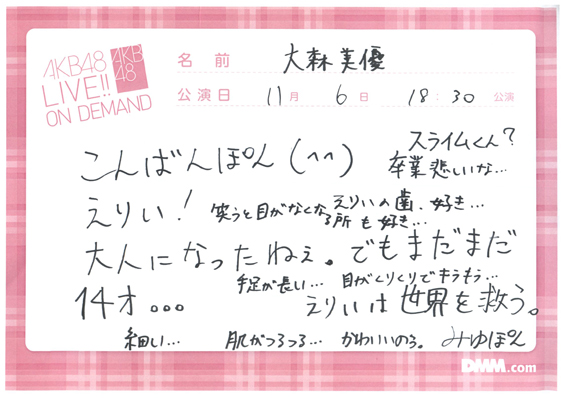 AKB48
LIVE!!
ON DEMAND
AKB
48
名前 大森美優
公演日 11月 6日 18:30 公演
こんばんぽん(^^)
スライムくん?
卒業悲しいな…
えりい!
笑うと目がなくなる所も好き…
えりいの歯、好き…
大人になったねぇ。でもまだまだ
手足が長い… 目がくりくりでキラもう…
14才。。。
えりいは世界を救う。
細い… 肌がつるつる… かわいいのぅ。 みゆぽん
DMM.com